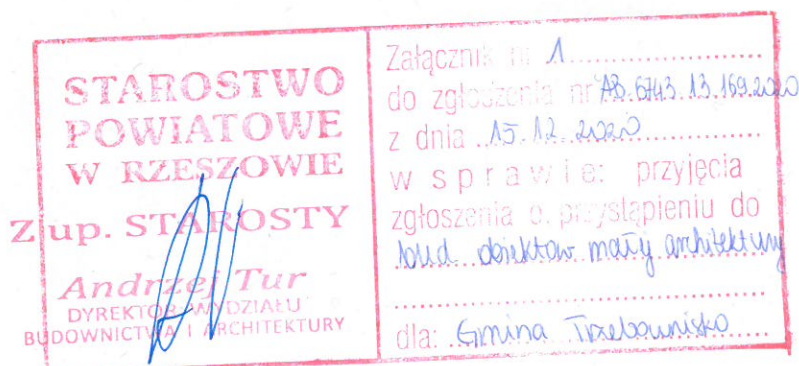 STAROSTWO
POWIATOWE
W RZESZOWIE
Z up. STAROSTY
Andrzej Tur
DYREKTOR WYDZIAŁU
BUDOWNICTWA I ARCHITEKTURY
Załącznik nr 1
do zgłoszenia nr AB.6743.13.169.2020
z dnia 15.12.2020
w sprawie: przyjęcia
zgłoszenia o przystąpieniu do
bud obiektów małej architektury
dla: Gmina Trzebownisko